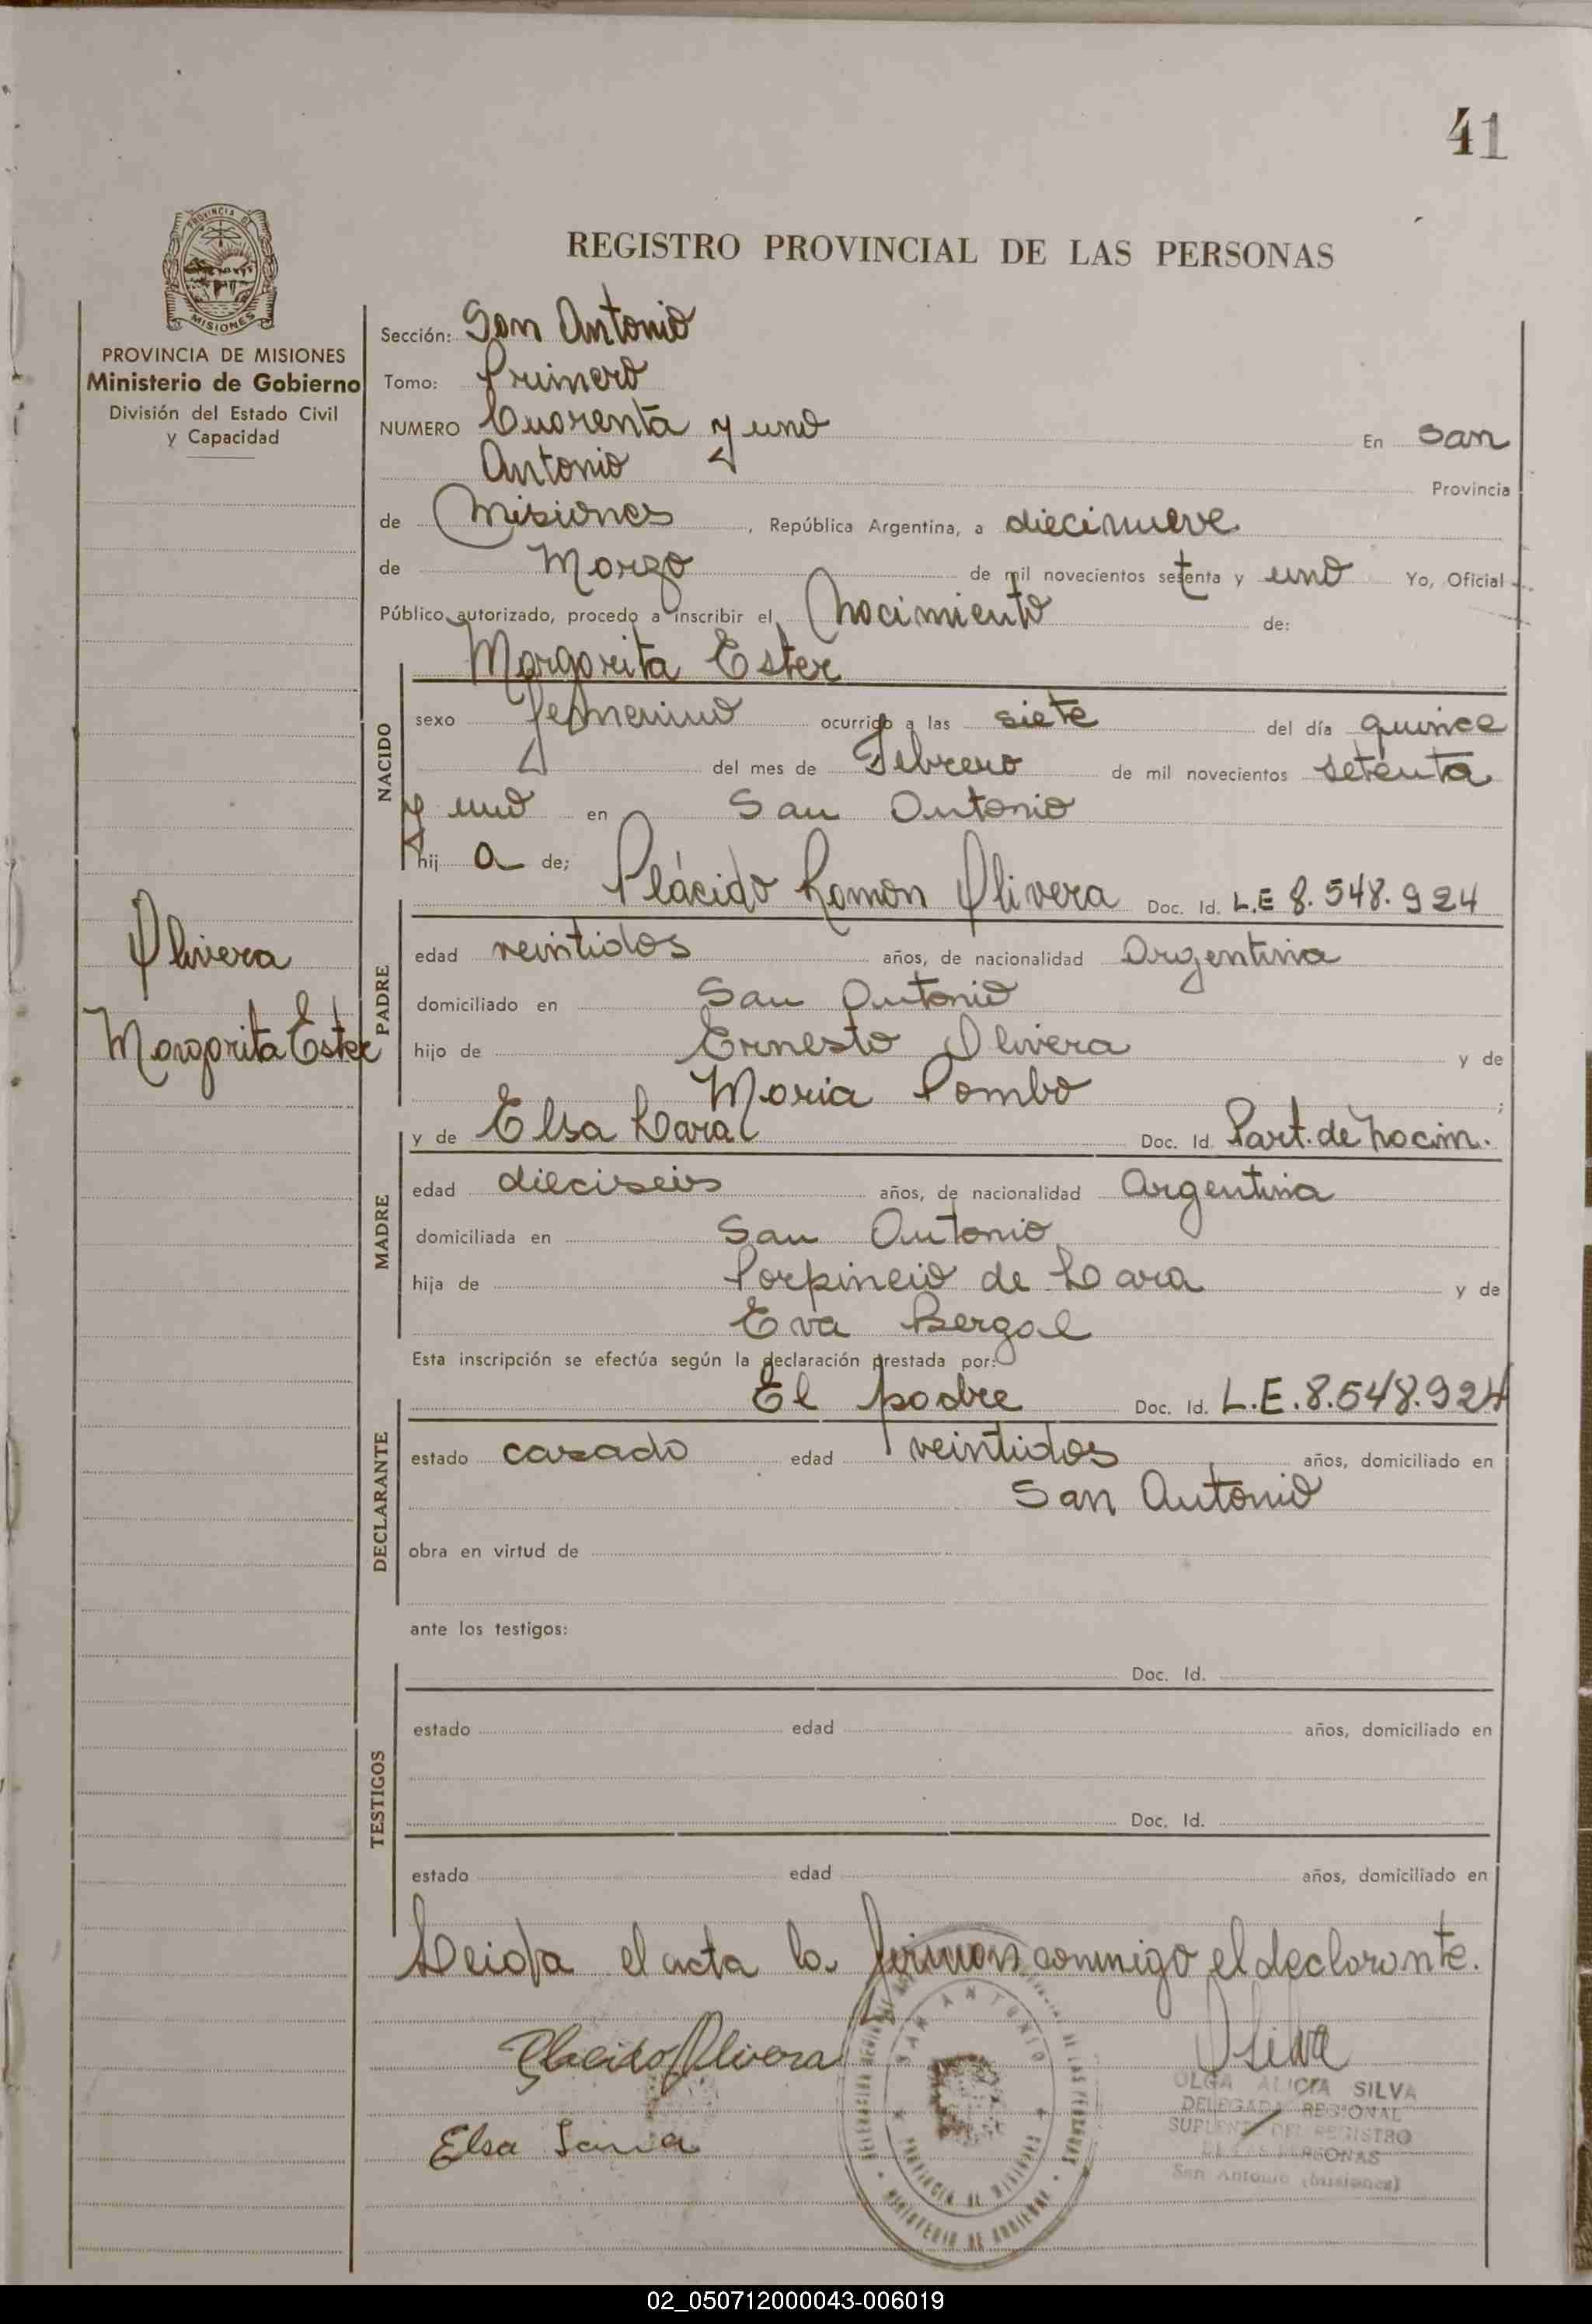 41
PROVINCIA DE
MISIONES
REGISTRO PROVINCIAL DE LAS PERSONAS
PROVINCIA DE MISIONES
Ministerio de Gobierno
División del Estado Civil
y Capacidad
Sección: San Antonio
Tomo: Primero
NUMERO Cuarenta y uno En San
Antonio Provincia
de Misiones, República Argentina, a diecinueve
de Marzo de mil novecientos setenta y uno Yo, Oficial
Público autorizado, procedo a inscribir el Nacimiento de:
Margarita Ester
NACIDO
sexo femenino ocurrido a las siete del día quince
del mes de Febrero de mil novecientos setenta
y uno en San Antonio
hij a de;
Plácido Ramon Olivera Doc. Id. L.E 8.548.924
Olivera
Margarita Ester
PADRE
edad veintidos años, de nacionalidad Argentina
domiciliado en San Antonio
hijo de Ernesto Olivera y de
Maria Pombo ;
y de Elsa Lara Doc. Id. Part. de Nacim.
MADRE
edad dieciseis años, de nacionalidad Argentina
domiciliada en San Antonio
hija de Porpincio de Lara y de
Eva Bergal
Esta inscripción se efectúa según la declaración prestada por:
El padre Doc. Id. L.E. 8.548.924
DECLARANTE
estado casado edad veintidos años, domiciliado en
San Antonio
obra en virtud de
ante los testigos:
Doc. Id.
TESTIGOS
estado edad años, domiciliado en
Doc. Id.
estado edad años, domiciliado en
Leida el acta la firman conmigo el declarante.
Placido Olivera
OSilva
OLGA ALICIA SILVA
DELEGADA REGIONAL
SUPLENTE DEL REGISTRO
DE LAS PERSONAS
San Antonio (Misiones)
Elsa Lara
SAN ANTONIO
PROVINCIA DE MISIONES
MINISTERIO DE GOBIERNO
02_050712000043-006019